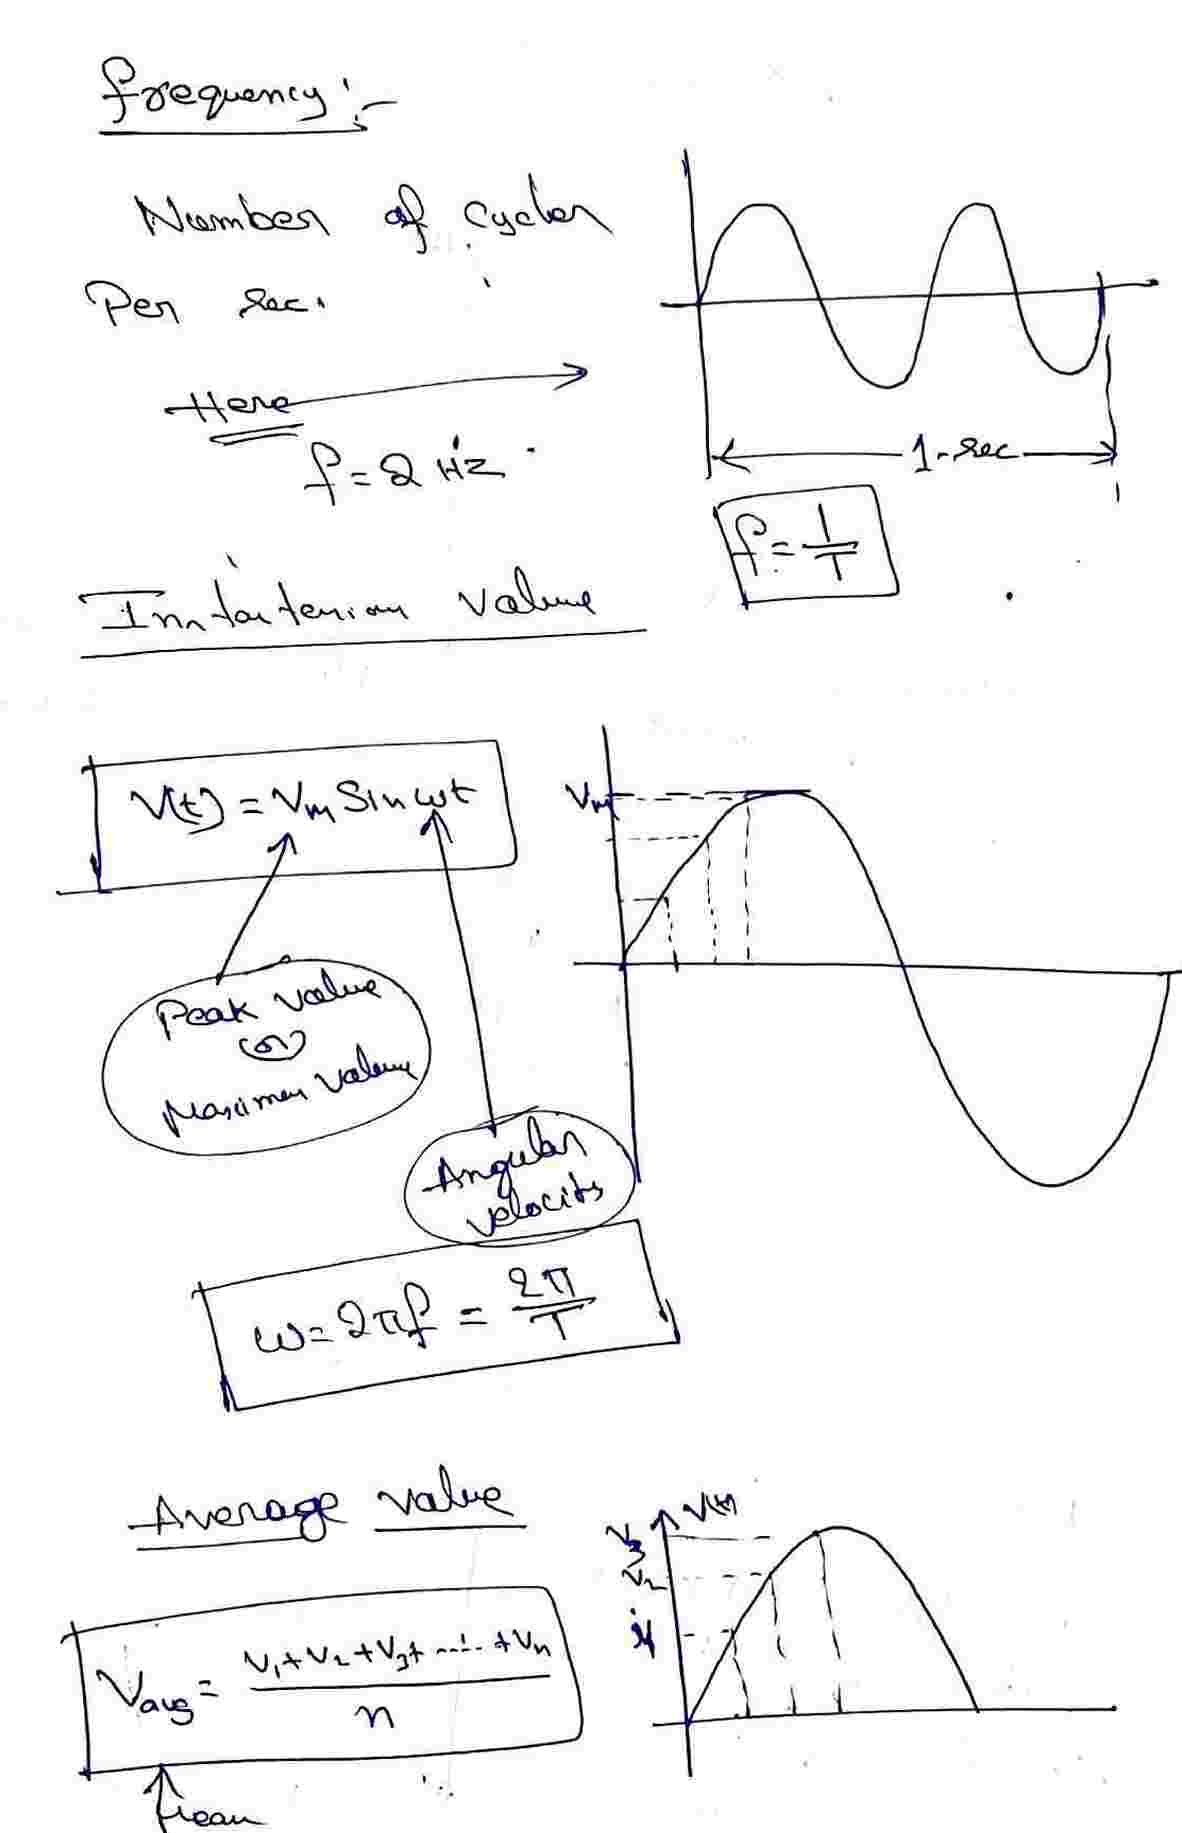 frequency :-
Number of cycles
Per sec.
Here
f = 2 Hz
1-sec
f = 1/T
Instantenious value
V(t) = Vm Sin ωt
Vm
Peak value
(or)
Maximum value
Angular
velocity
ω = 2πf = 2π/T
Average value
V(t)
V3
V2
V1
Vavg = V1 + V2 + V3 + ...... + Vn / n
mean